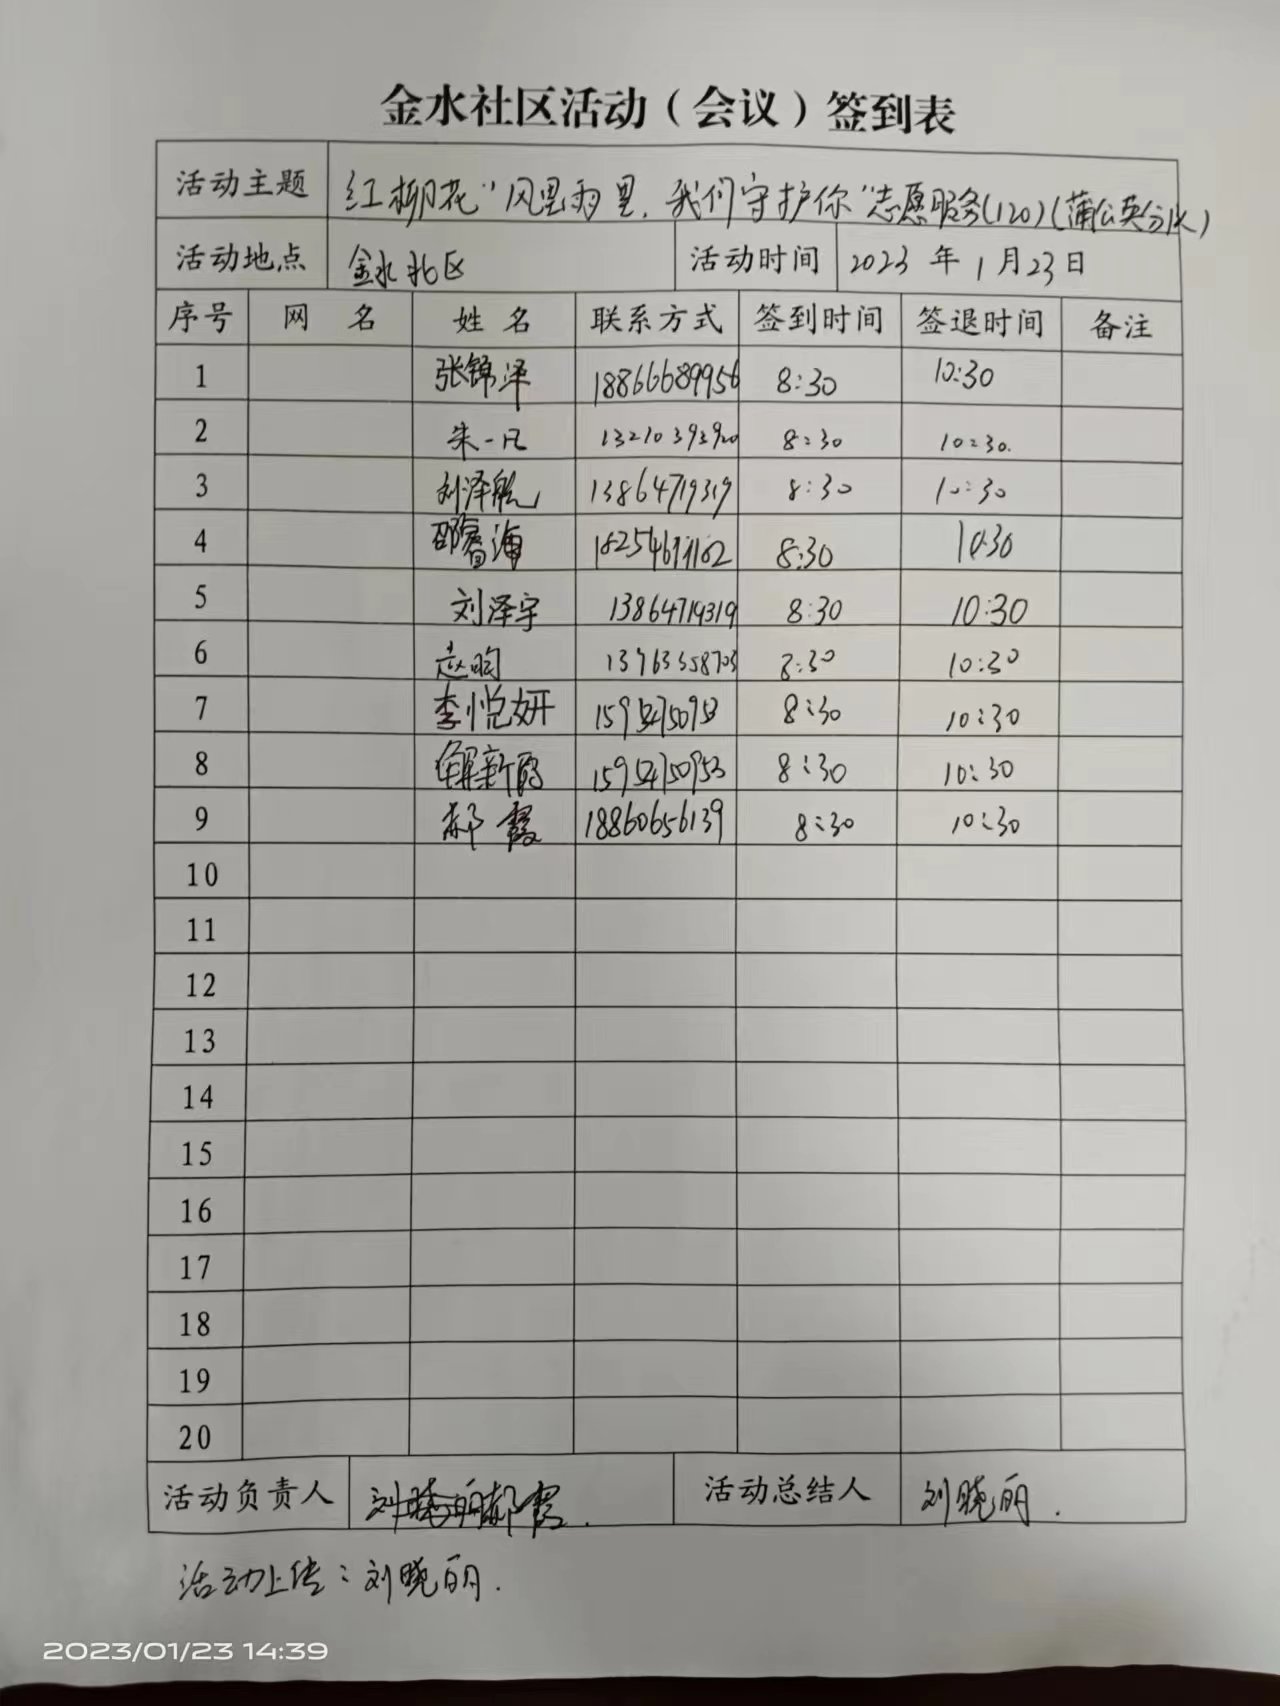 金水社区活动（会议）签到表
活动主题 红柳花"风里雨里，我们守护你"志愿服务(120)(蒲公英分队)
活动地点 金水北区 活动时间 2023 年 1 月 23 日
序号 网 名 姓 名 联系方式 签到时间 签退时间 备注
1 张锦泽 18866689956 8:30 10:30
2 朱一凡 13210393920 8:30 10:30.
3 刘泽航 13864719319 8:30 10:30
4 邵睿海 8:30 10:30
5 刘泽宇 13864719319 8:30 10:30
6 赵昀 13763358703 8:30 10:30
7 李悦妍 15954750953 8:30 10:30
8 解新霞 15954750953 8:30 10:30
9 郝霞 18860656139 8:30 10:30
10
11
12
13
14
15
16
17
18
19
20
活动负责人 刘晓丽郝霞. 活动总结人 刘晓丽.
活动上传：刘晓丽.
2023/01/23 14:39